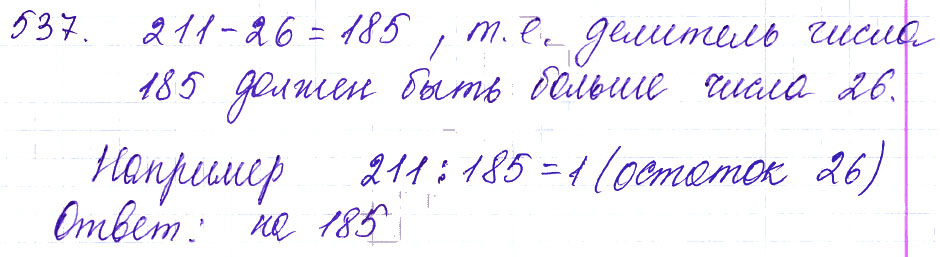 537. 211-26=185, т.е. делитель числа
185 должен быть больше числа 26.
Например 211:185=1 (остаток 26)
Ответ: на 185